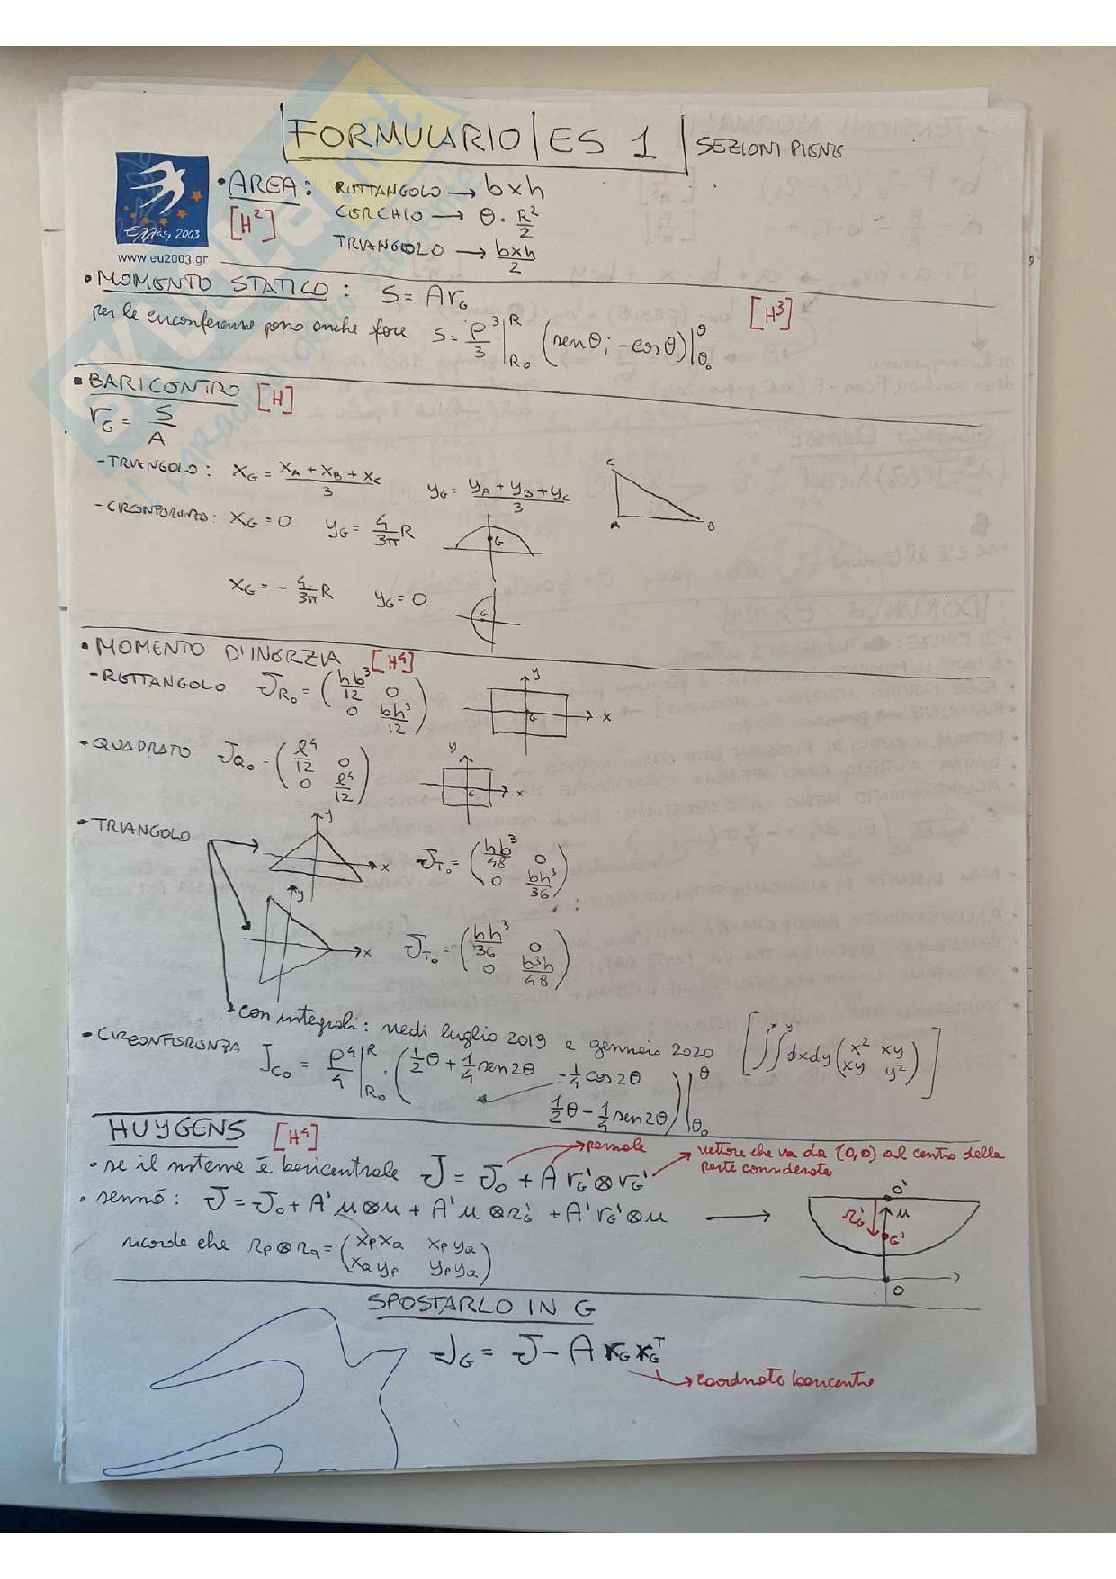 FORMULARIO | ES 1 | SEZIONI PIENE
• AREA: RETTANGOLO → b x h
[H²] CERCHIO → θ · R²/2
TRIANGOLO → bxh/2
www.eu2003.gr
• MOMENTO STATICO: S = A r_G [H³]
per le circonferenze posso anche fare S = ρ³/3 |_{R₀}^{R} (sen θ; -cos θ)|_{θ₀}^{θ}
• BARICENTRO [H]
r_G = S/A
- TRIANGOLO: x_G = (x_A + x_B + x_C)/3 y_G = (y_A + y_B + y_C)/3
C
A B
- CIRCONFERENZA: x_G = 0 y_G = 4/3π R
G
x_G = - 4/3π R y_G = 0
G
• MOMENTO D'INERZIA [H⁴]
- RETTANGOLO J_{R₀} = (hb³/12 0
0 bh³/12)
y
G
x
- QUADRATO J_{Q₀} = (ℓ⁴/12 0
0 ℓ⁴/12)
y
G
x
- TRIANGOLO
y
x
J_{T₀} = (hb³/48 0
0 bh³/36)
y
x
J_{T₀} = (bh³/36 0
0 b³h/48)
con integrali: vedi luglio 2019 e gennaio 2020 [∫∫ dxdy (x² xy
xy y²)]
- CIRCONFERENZA J_{C₀} = ρ⁴/4 |_{R₀}^{R} · (1/2 θ + 1/4 sen 2θ -1/4 cos 2θ
1/2 θ - 1/4 sen 2θ)|_{θ₀}^{θ}
HUYGENS [H⁴]
• se il sistema è baricentrale J = J₀ + A r_G' ⊗ r_G'
→ parziale
→ vettore che va da (0,0) al centro della parte considerata
• sennò: J = J₀ + A' u ⊗ u + A' u ⊗ r_G' + A' r_G' ⊗ u →
ricorda che r_P ⊗ r_Q = (x_P x_Q x_P y_Q
x_Q y_P y_P y_Q)
O'
r_G' u
G'
O
SPOSTARLO IN G
J_G = J - A r_G r_G^T
→ coordinate baricentro